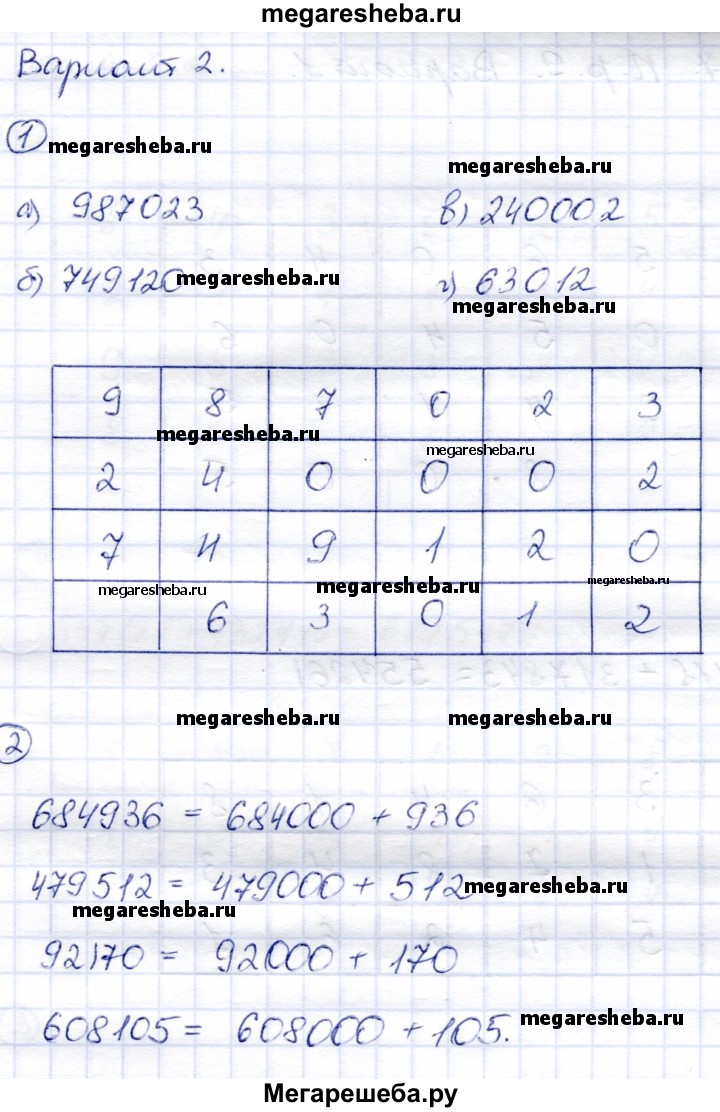 megaresheba.ru
Вариант 2.
1 megaresheba.ru
megaresheba.ru
а) 987023 в) 240002
б) 749120 megaresheba.ru г) 63012
megaresheba.ru
9 8 7 0 2 3
megaresheba.ru megaresheba.ru
2 4 0 0 0 2
7 4 9 1 2 0
megaresheba.ru megaresheba.ru megaresheba.ru
6 3 0 1 2
megaresheba.ru megaresheba.ru
2
684936 = 684000 + 936
479512 = 479000 + 512 megaresheba.ru
megaresheba.ru
92170 = 92000 + 170
608105 = 608000 + 105. megaresheba.ru
Мегарешеба.ру